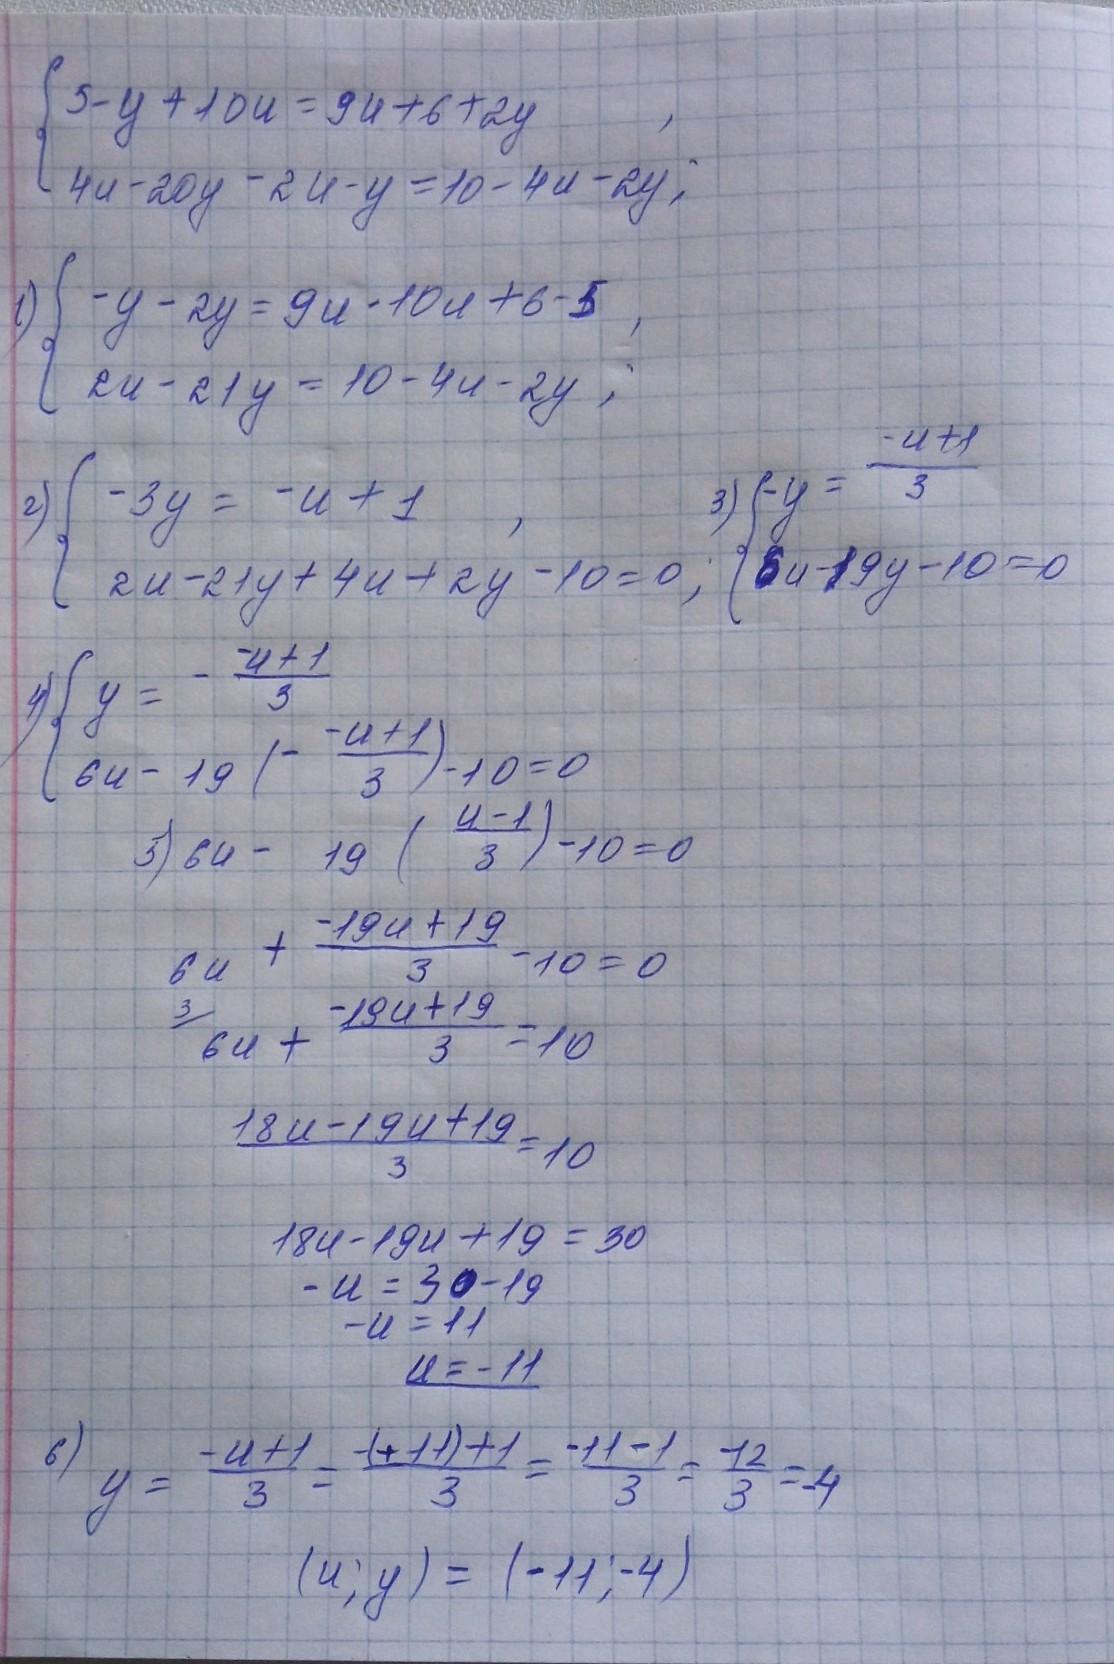 { 5-y+10u=9u+6+2y ,
4u-20y-2u-y=10-4u-2y;
1) { -y-2y=9u-10u+6-5 ,
2u-21y=10-4u-2y;
2) { -3y = -u+1 ,
2u-21y+4u+2y-10=0;
3) { -y = (-u+1)/3
6u-19y-10=0
4) { y = - (-u+1)/3
6u-19(- (-u+1)/3)-10=0
5) 6u- 19 ( (u-1)/3 )-10=0
6u + (-19u+19)/3 -10=0
3/ 6u+ (-19u+19)/3 =10
(18u-19u+19)/3 =10
18u-19u+19=30
-u=30-19
-u=11
u=-11
6) y= (-u+1)/3 = (-(+11)+1)/3 = (-11-1)/3 = -12/3 =-4
(u;y)=(-11;-4)